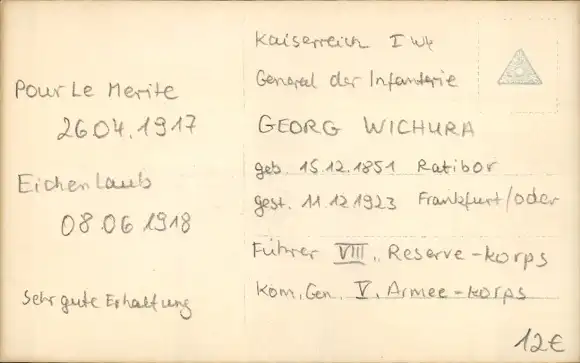 Pour Le Merite
26.04.1917
Eichenlaub
08.06 1918
Sehr gute Erhaltung
Kaiserreich I Wk
General der Infanterie
GEORG WICHURA
geb. 15.12.1851 Ratibor
gest. 11.12 1923 Frankfurt/oder
Führer VIII. Reserve-korps
Kom. Gen. V. Armee-korps
12€